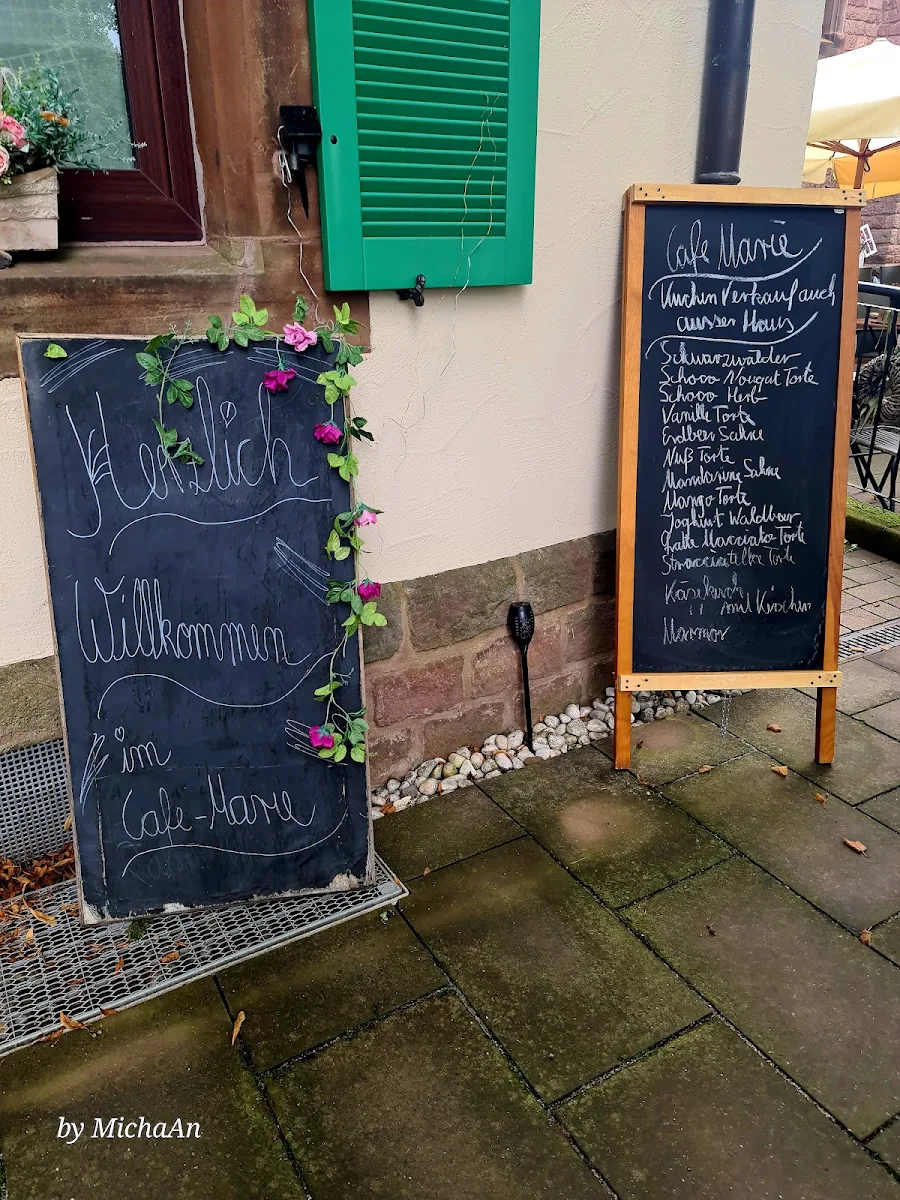 Herzlich
Willkommen
im
Cafe-Marie
Cafe Marie
Kuchen Verkauf auch
ausser Haus
Schwarzwälder
Schoco Nougat Torte
Schoco Herb
Vanille Torte
Erdbeer Sahne
Nuß Torte
Mandarine Sahne
Mango Torte
Joghurt Waldbeer
Latte Macciato Torte
Stracciatella Torte
Käsekuch
" mit Kirschen
Marmor
by MichaAn